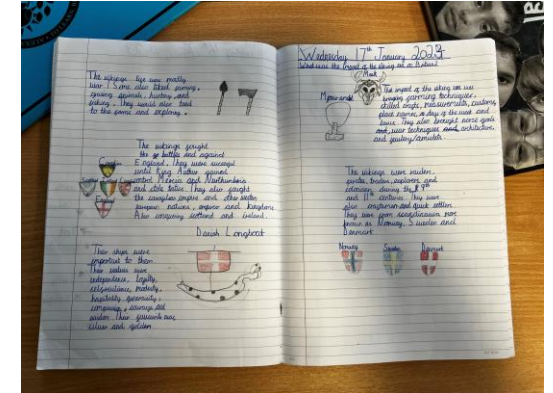 The vikings life was mostly
war. Some also liked farming,
raising animals, hunting and
fishing. They would also trad
to the same and exploring.
The vikings fought
battles and against
England. They were
until King Arthur gained
control Mercia and Northumbria
and stole lotus. They also fought
the empire and other
european nations, empires and kingdoms.
Also conquering scotland and ireland.
Danish Longboat
Their ships were
important to them
Their values were
independence, loyalty,
modesty,
hospitality generosity,
courage and
wisdom. Their were
silver and golden
Wednesday 17th January 202
What was the impact of the viking era on Britain?
Mask
The impact of the viking era was
bringing farming techniques,
skilled crafts, measurements, customs,
place names, days of the week and
laws. They also brought norse gods
and, war techniques and, architecture,
and jewellery/amulets.
The vikings were raiders,
pirates, traders, explorers and
colonisers during the 9th
and 11th centuries. They were
also craftsmen and quick settlers.
They were from scandinavia now
known as Norway, Sweden and
Denmark.
Norway Sweden Denmark